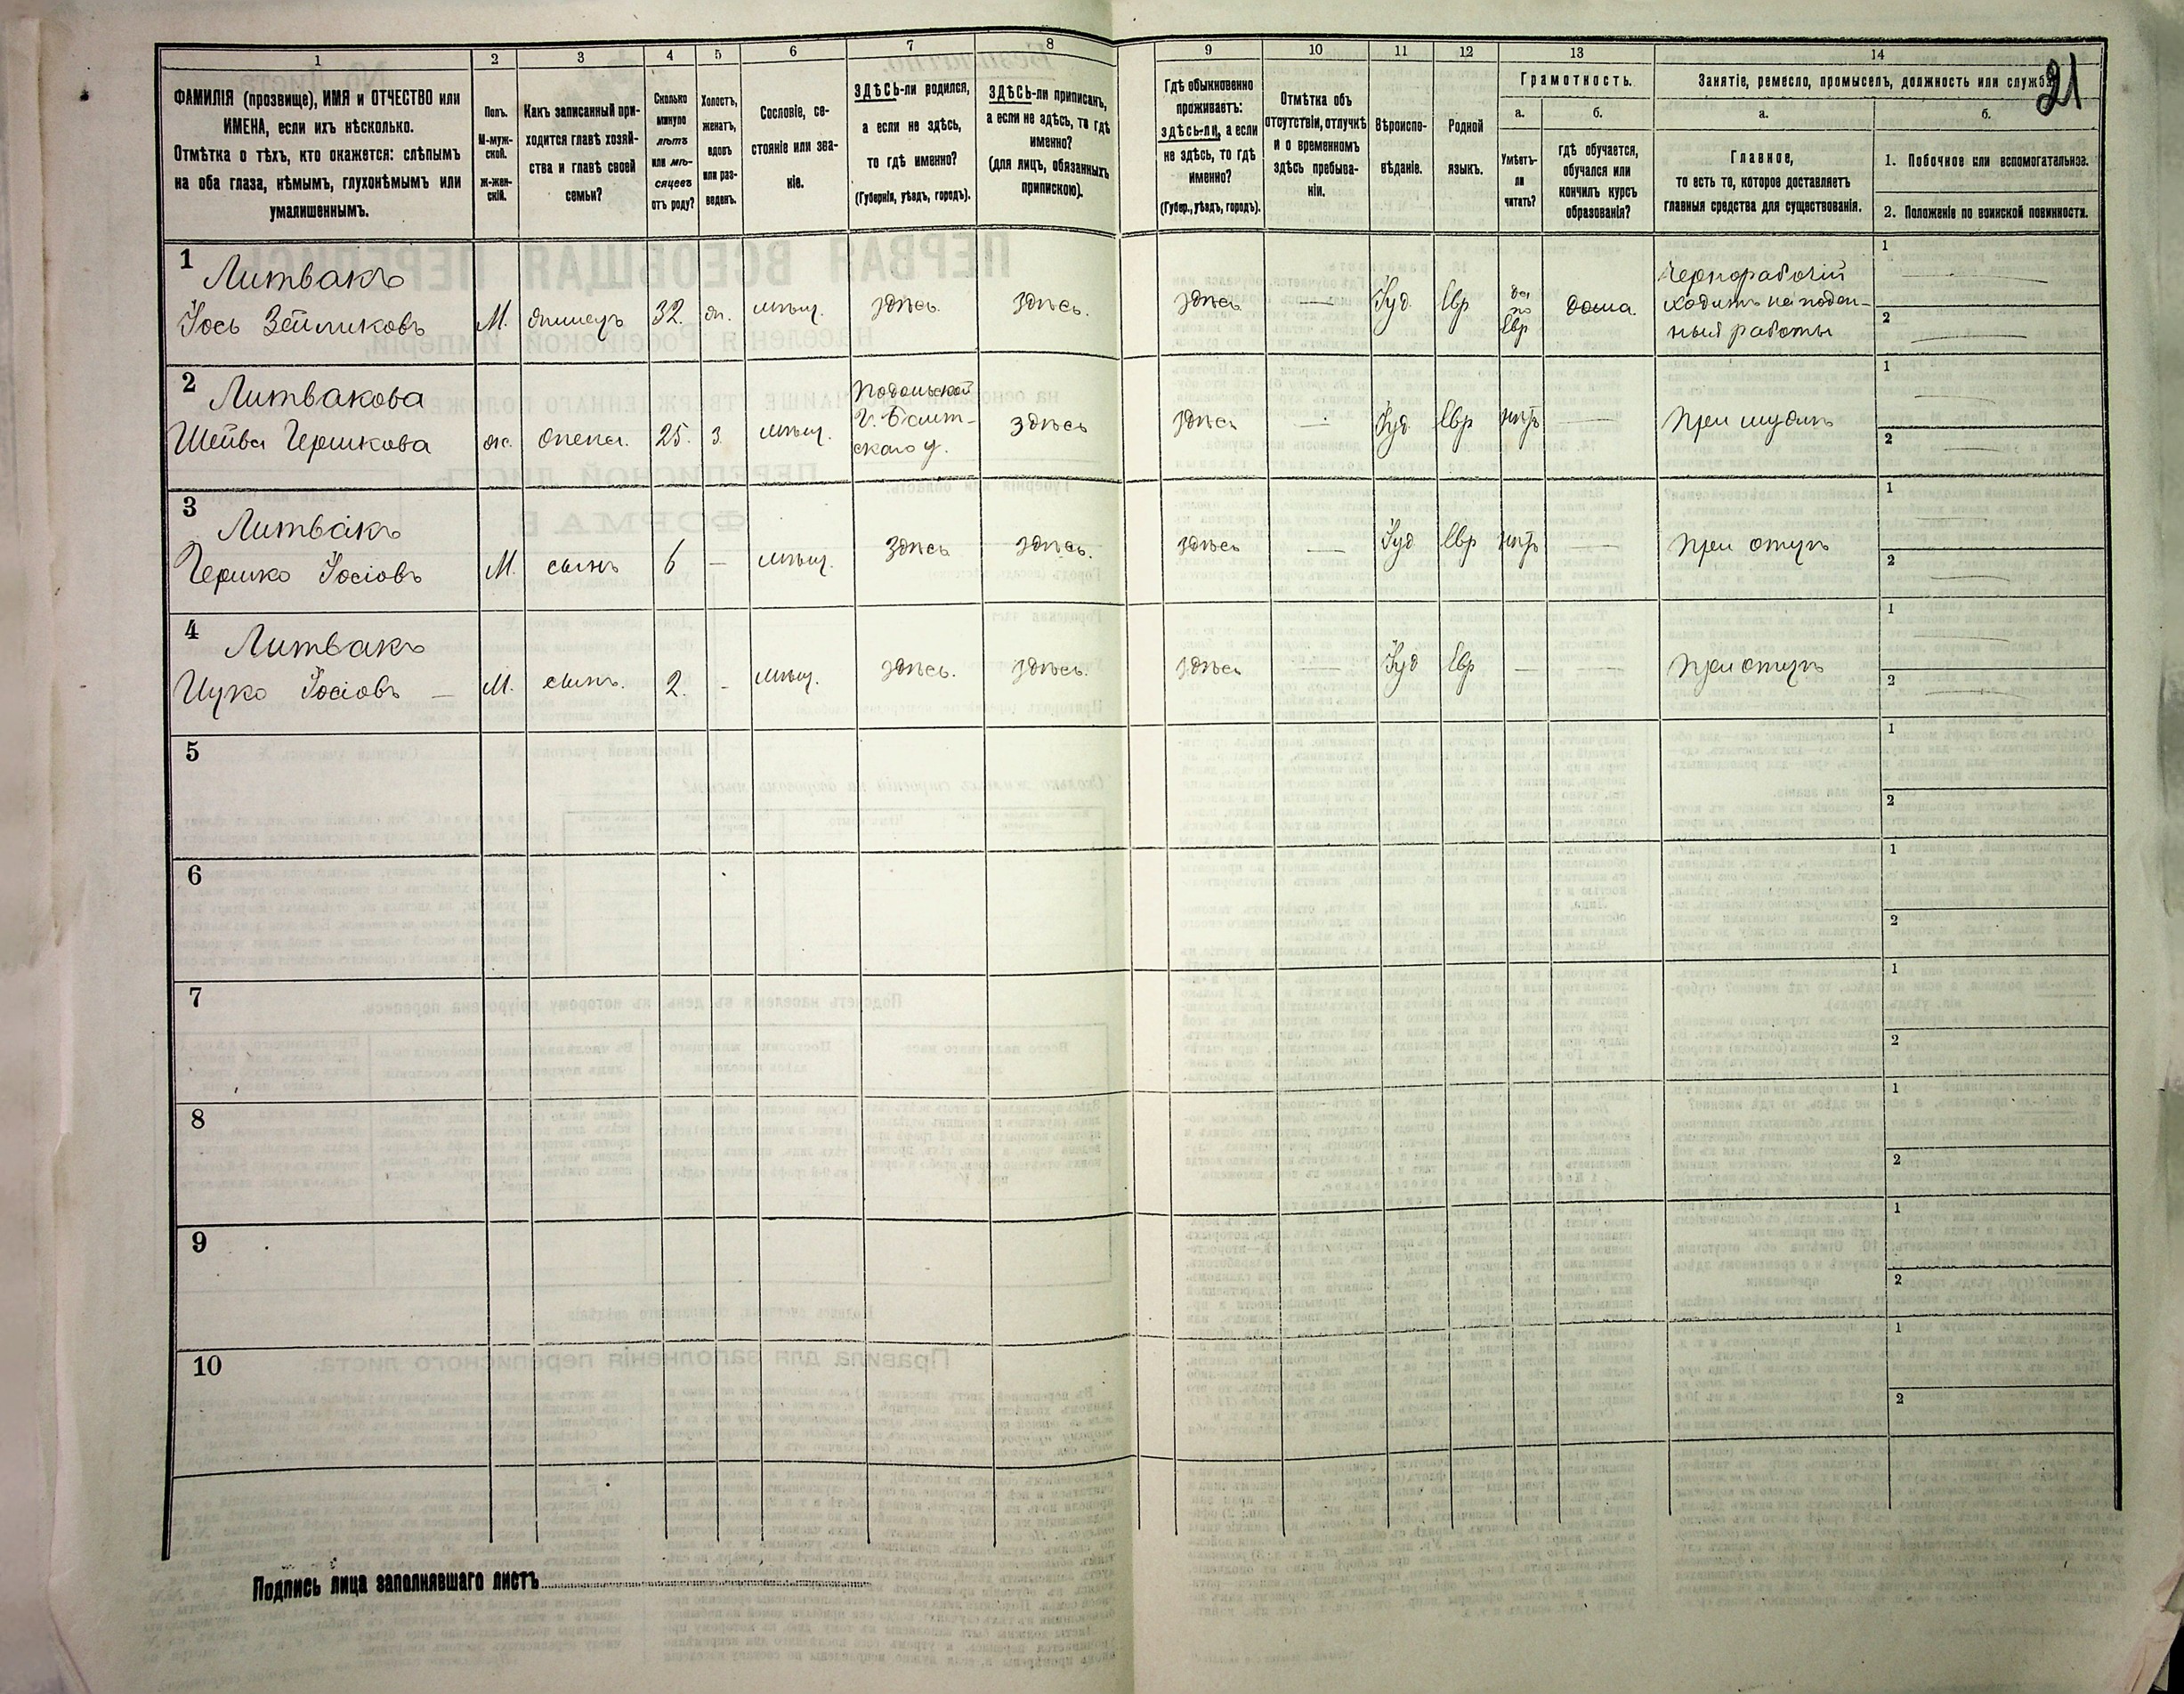 1 2 3 4 5 6 7 8 9 10 11 12 13 14
21
ФАМИЛІЯ (прозвище), ИМЯ и ОТЧЕСТВО или
ИМЕНА, если ихъ нѣсколько.
Отмѣтка о тѣхъ, кто окажется: слѣпымъ
на оба глаза, нѣмымъ, глухонѣмымъ или
умалишеннымъ.
Полъ.
М-муж-
ской.
Ж-жен-
скій.
Какъ записанный при-
ходится главѣ хозяй-
ства и главѣ своей
семьи?
Сколько
минуло
лѣтъ
или мѣ-
сяцевъ
отъ роду?
Холостъ,
женатъ,
вдовъ
или раз-
веденъ.
Сословіе, со-
стояніе или зва-
ніе.
ЗДѢСЬ-ли родился,
а если не здѣсь,
то гдѣ именно?
(Губернія, уѣздъ, городъ).
ЗДѢСЬ-ли приписанъ,
а если не здѣсь, то гдѣ
именно?
(для лицъ, обязанныхъ
припискою).
Гдѣ обыкновенно
проживаетъ:
здѣсь-ли, а если
не здѣсь, то гдѣ
именно?
(Губер., уѣздъ, городъ).
Отмѣтка объ
отсутствіи, отлучкѣ
и о временномъ
здѣсь пребыва-
ніи.
Вѣроиспо-
вѣданіе.
Родной
языкъ.
Грамотность.
а. б.
Умѣетъ-
ли
читать?
гдѣ обучается,
обучался или
кончилъ курсъ
образованія?
Занятіе, ремесло, промыселъ, должность или служба.
а. б.
Главное,
то есть то, которое доставляетъ
главныя средства для существованія.
1. Побочное или вспомогательное.
2. Положеніе по воинской повинности.
1 Литвакъ
Іось Зейликовъ М. 32. мѣщ. здѣсь. здѣсь. здѣсь — Іуд. Евр да по Евр дома.
Чернорабочій
ходитъ на поден-
ныя работы
1 —
2 —
2 Литвакова
Шейва Гершкова ж. 25. з. мѣщ.
Подольской
г. Балт-
скаго у.
здѣсь здѣсь — Іуд Евр нѣтъ — при мужѣ
1 —
2 —
3 Литвакъ
Гершко Іосіовъ М. сынъ 6 — мѣщ. здѣсь здѣсь. здѣсь — Іуд Евр нѣтъ — при отцѣ
1 —
2 —
4 Литвакъ
Ицко Іосіовъ — М. сынъ. 2. - мѣщ. здѣсь. здѣсь. здѣсь — Іуд Евр — — при отцѣ
1 —
2 —
5 1
2
6 1
2
7 1
2
8 1
2
9 1
2
10 1
2
Подпись лица заполнявшаго листъ